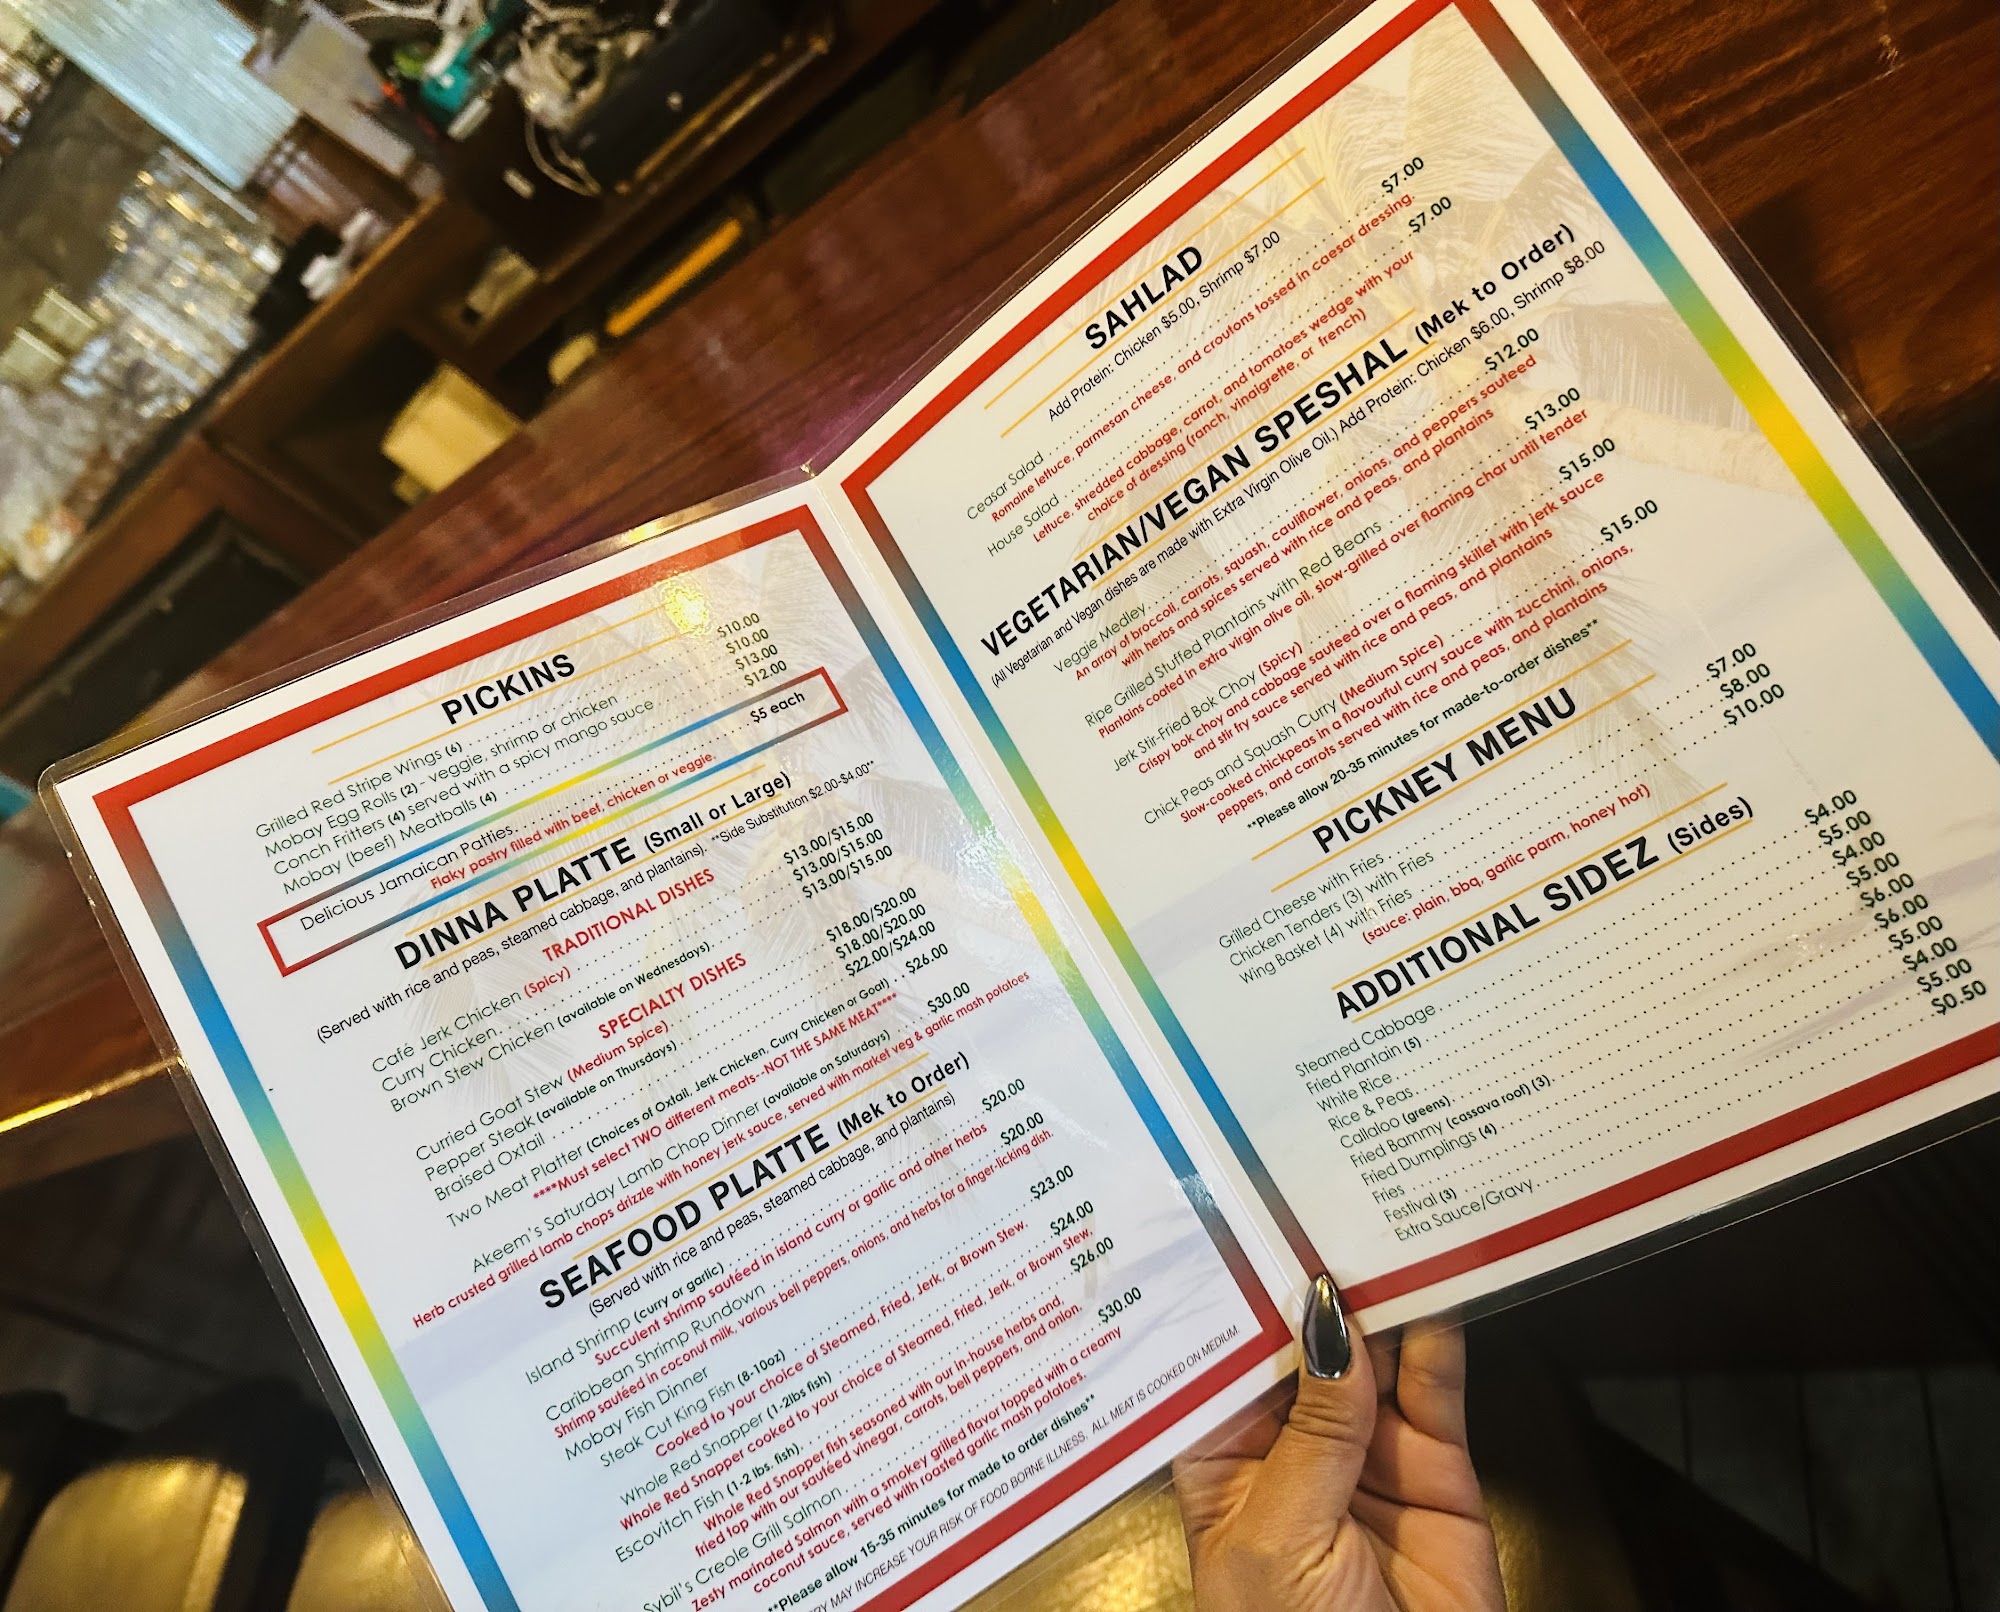 PICKINS
Grilled Red Stripe Wings (6) $10.00
Mobay Egg Rolls (2) - veggie, shrimp or chicken $10.00
Conch Fritters (4) served with a spicy mango sauce $13.00
Mobay (beef) Meatballs (4) $12.00
Delicious Jamaican Patties $5 each
Flaky pastry filled with beef, chicken or veggie.
DINNA PLATTE (Small or Large)
(Served with rice and peas, steamed cabbage, and plantains). **Side Substitution $2.00-$4.00**
TRADITIONAL DISHES
Café Jerk Chicken (Spicy) $13.00/$15.00
Curry Chicken $13.00/$15.00
Brown Stew Chicken (available on Wednesdays) $13.00/$15.00
SPECIALTY DISHES
Curried Goat Stew (Medium Spice) $18.00/$20.00
Pepper Steak (available on Thursdays) $18.00/$20.00
Braised Oxtail $22.00/$24.00
Two Meat Platter (Choices of Oxtail, Jerk Chicken, Curry Chicken or Goat) $26.00
****Must select TWO different meats--NOT THE SAME MEAT****
Akeem's Saturday Lamb Chop Dinner (available on Saturdays) $30.00
Herb crusted grilled lamb chops drizzle with honey jerk sauce, served with market veg & garlic mash potatoes
SEAFOOD PLATTE (Mek to Order)
(Served with rice and peas, steamed cabbage, and plantains)
Island Shrimp (curry or garlic) $20.00
Succulent shrimp sautéed in island curry or garlic and other herbs
Caribbean Shrimp Rundown $20.00
Shrimp sautéed in coconut milk, various bell peppers, onions, and herbs for a finger-licking dish.
Mobay Fish Dinner
Steak Cut King Fish (8-10oz) $23.00
Cooked to your choice of Steamed, Fried, Jerk, or Brown Stew.
Whole Red Snapper (1-2lbs fish) $24.00
Whole Red Snapper cooked to your choice of Steamed, Fried, Jerk, or Brown Stew.
Escovitch Fish (1-2 lbs. fish) $26.00
Whole Red Snapper fish seasoned with our in-house herbs and,
fried top with our sautéed vinegar, carrots, bell peppers, and onion.
Sybil's Creole Grill Salmon $30.00
Zesty marinated Salmon with a smokey grilled flavor topped with a creamy
coconut sauce, served with roasted garlic mash potatoes.
**Please allow 15-35 minutes for made to order dishes**
MAY INCREASE YOUR RISK OF FOOD BORNE ILLNESS. ALL MEAT IS COOKED ON MEDIUM.
SAHLAD
Add Protein: Chicken $5.00, Shrimp $7.00
Ceasar Salad $7.00
Romaine lettuce, parmesan cheese, and croutons tossed in caesar dressing.
House Salad $7.00
Lettuce, shredded cabbage, carrot, and tomatoes wedge with your
choice of dressing (ranch, vinaigrette, or french)
VEGETARIAN/VEGAN SPESHAL (Mek to Order)
(All Vegetarian and Vegan dishes are made with Extra Virgin Olive Oil.) Add Protein: Chicken $6.00, Shrimp $8.00
Veggie Medley $12.00
An array of broccoli, carrots, squash, cauliflower, onions, and peppers sauteed
with herbs and spices served with rice and peas, and plantains
Ripe Grilled Stuffed Plantains with Red Beans $13.00
Plantains coated in extra virgin olive oil, slow-grilled over flaming char until tender
Jerk Stir-Fried Bok Choy (Spicy) $15.00
Crispy bok choy and cabbage sauteed over a flaming skillet with jerk sauce
and stir fry sauce served with rice and peas, and plantains
Chick Peas and Squash Curry (Medium Spice) $15.00
Slow-cooked chickpeas in a flavourful curry sauce with zucchini, onions,
peppers, and carrots served with rice and peas, and plantains
**Please allow 20-35 minutes for made-to-order dishes**
PICKNEY MENU
Grilled Cheese with Fries $7.00
Chicken Tenders (3) with Fries $8.00
Wing Basket (4) with Fries $10.00
(sauce: plain, bbq, garlic parm, honey hot)
ADDITIONAL SIDEZ (Sides)
Steamed Cabbage $4.00
Fried Plantain (5) $5.00
White Rice $4.00
Rice & Peas $5.00
Callaloo (greens) $6.00
Fried Bammy (cassava root) (3) $6.00
Fried Dumplings (4) $5.00
Fries $4.00
Festival (3) $5.00
Extra Sauce/Gravy $0.50